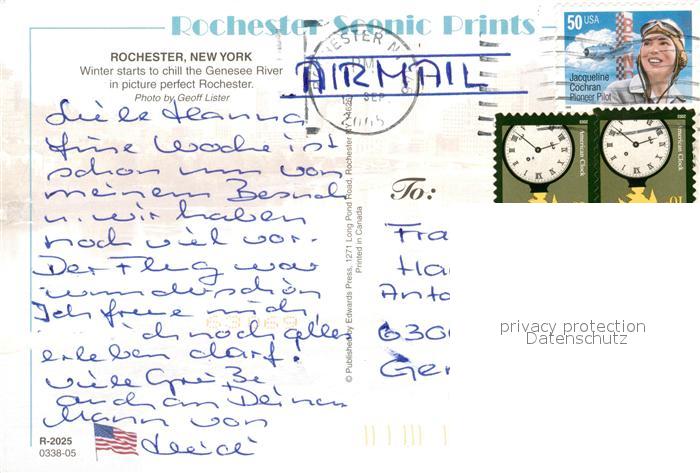 Rochester Scenic Prints
ROCHESTER, NEW YORK
Winter starts to chill the Genesee River
in picture perfect Rochester.
Photo by Geoff Lister
AIRMAIL
ROCHESTER N
PM
SEP
2005
50 USA
Jacqueline
Cochran
Pioneer Pilot
American Clock
2003
American Clock
2003
10
Liebe Hanna
Eine Woche ist
schon um von
meinem Besuch
u. wir haben
noch viel vor.
Der Flug war
wunderschön
Ich freue mich,
ich noch alles
erleben darf.
Viele Grüße
auch an Deinen
Mann von
Heidi
R-2025
0338-05
© Published by Edwards Press, 1271 Long Pond Road, Rochester NY 14626
Printed in Canada
To:
Fra
Ha
Anto
630
Ger
privacy protection
Datenschutz